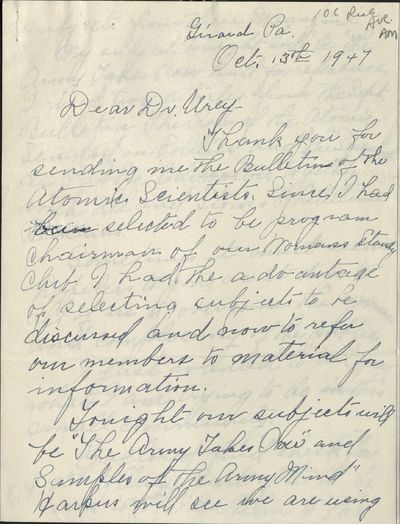 106 Rice
Ave
AM
Girard Pa.
Oct. 13th 1947
Dear Dr. Urey
Thank you for
sending me the Bulletins of the
Atomic Scientists. Since I had
been selected to be program
chairman of our Womans Study
Club I had the advantage
of selecting subjects to be
discussed and now to refer
our members to material for
information.
Tonight our subjects will
be "The Army Takes Over" and
Samples of the Army Mind"
Harpers will see we are using